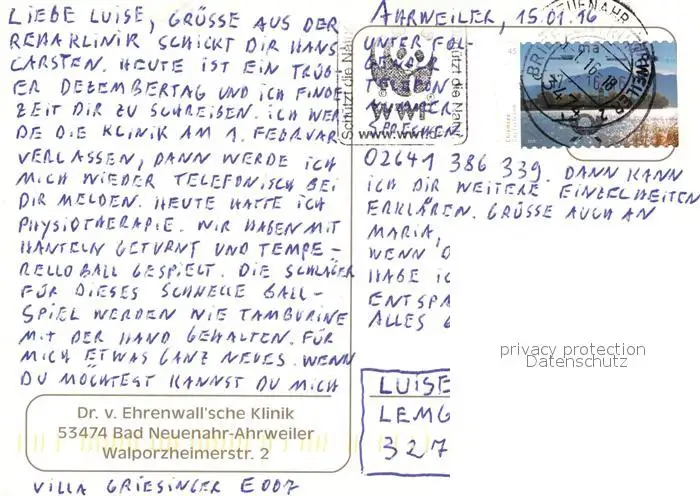 LIEBE LUISE, GRÜSSE AUS DER
REHAKLINIK SCHICKT DIR HANS
CARSTEN. HEUTE IST EIN TRÜB-
ER DEZEMBERTAG UND ICH FINDE
ZEIT DIR ZU SCHREIBEN. ICH WER
DE DIE KLINIK AM 1. FEBRUAR
VERLASSEN, DANN WERDE ICH
MICH WIEDER TELEFONISCH BEI
DIR MELDEN. HEUTE HATTE ICH
PHYSIOTHERAPIE. WIR HABEN MIT
HANTELN GETURNT UND TEMPE-
RELLOBALL GESPIELT. DIE SCHLÄGER
FÜR DIESES SCHNELLE BALL-
SPIEL WERDEN WIE TAMBURINE
MIT DER HAND GEHALTEN. FÜR
MICH ETWAS GANZ NEUES. WENN
DU MÖCHTEST KANNST DU MICH
Dr. v. Ehrenwall'sche Klinik
53474 Bad Neuenahr-Ahrweiler
Walporzheimerstr. 2
VILLA GRIESINGER E007
AHRWEILER, 15.01.16
UNTER FOL-
GENDER
TELEFON
NUMMER
SPRECHEN
02641 386 339. DANN KANN
ICH DIR WEITERE EINZELHEITEN
ERKLÄREN. GRÜSSE AUCH AN
MARIA,
WENN
HABE
ENTSPA
ALLES
Schützt die Natur
WWF
www.wwf
Schützt die Natur
45
NEUENAHR
LUISE
LEMG
327
privacy protection
Datenschutz